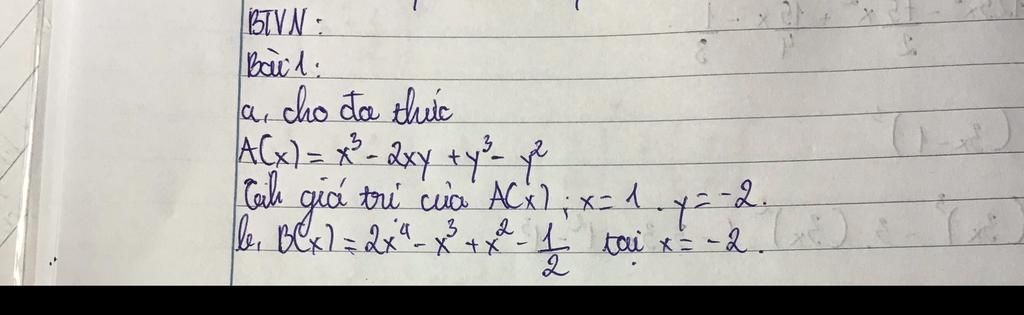 BTVN:
Bài 1:
a, cho đa thức
A(x) = x³ - 2xy + y³ - y²
Tính giá trị của A(x); x = 1. y = -2.
b, B(x) = 2x⁴ - x³ + x² - 1/2 tại x = -2.